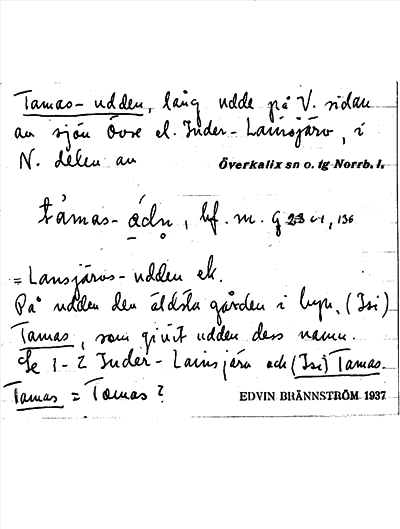 Tamas-udden, lång udde på V. sidan
av sjön Övre el. Inder-Lainsjärv, i
N. delen av Överkalix sn o. tg Norrb. l.
bf. m.
= Lansjärvs-udden el.
På udden den äldsta gården i byn, (Isi)
Tamas, som givit udden dess namn.
Se 1-2 Inder-Lainsjärv och (Isi) Tamas.
Tamas = Tomas?
EDVIN BRÄNNSTRÖM 1937